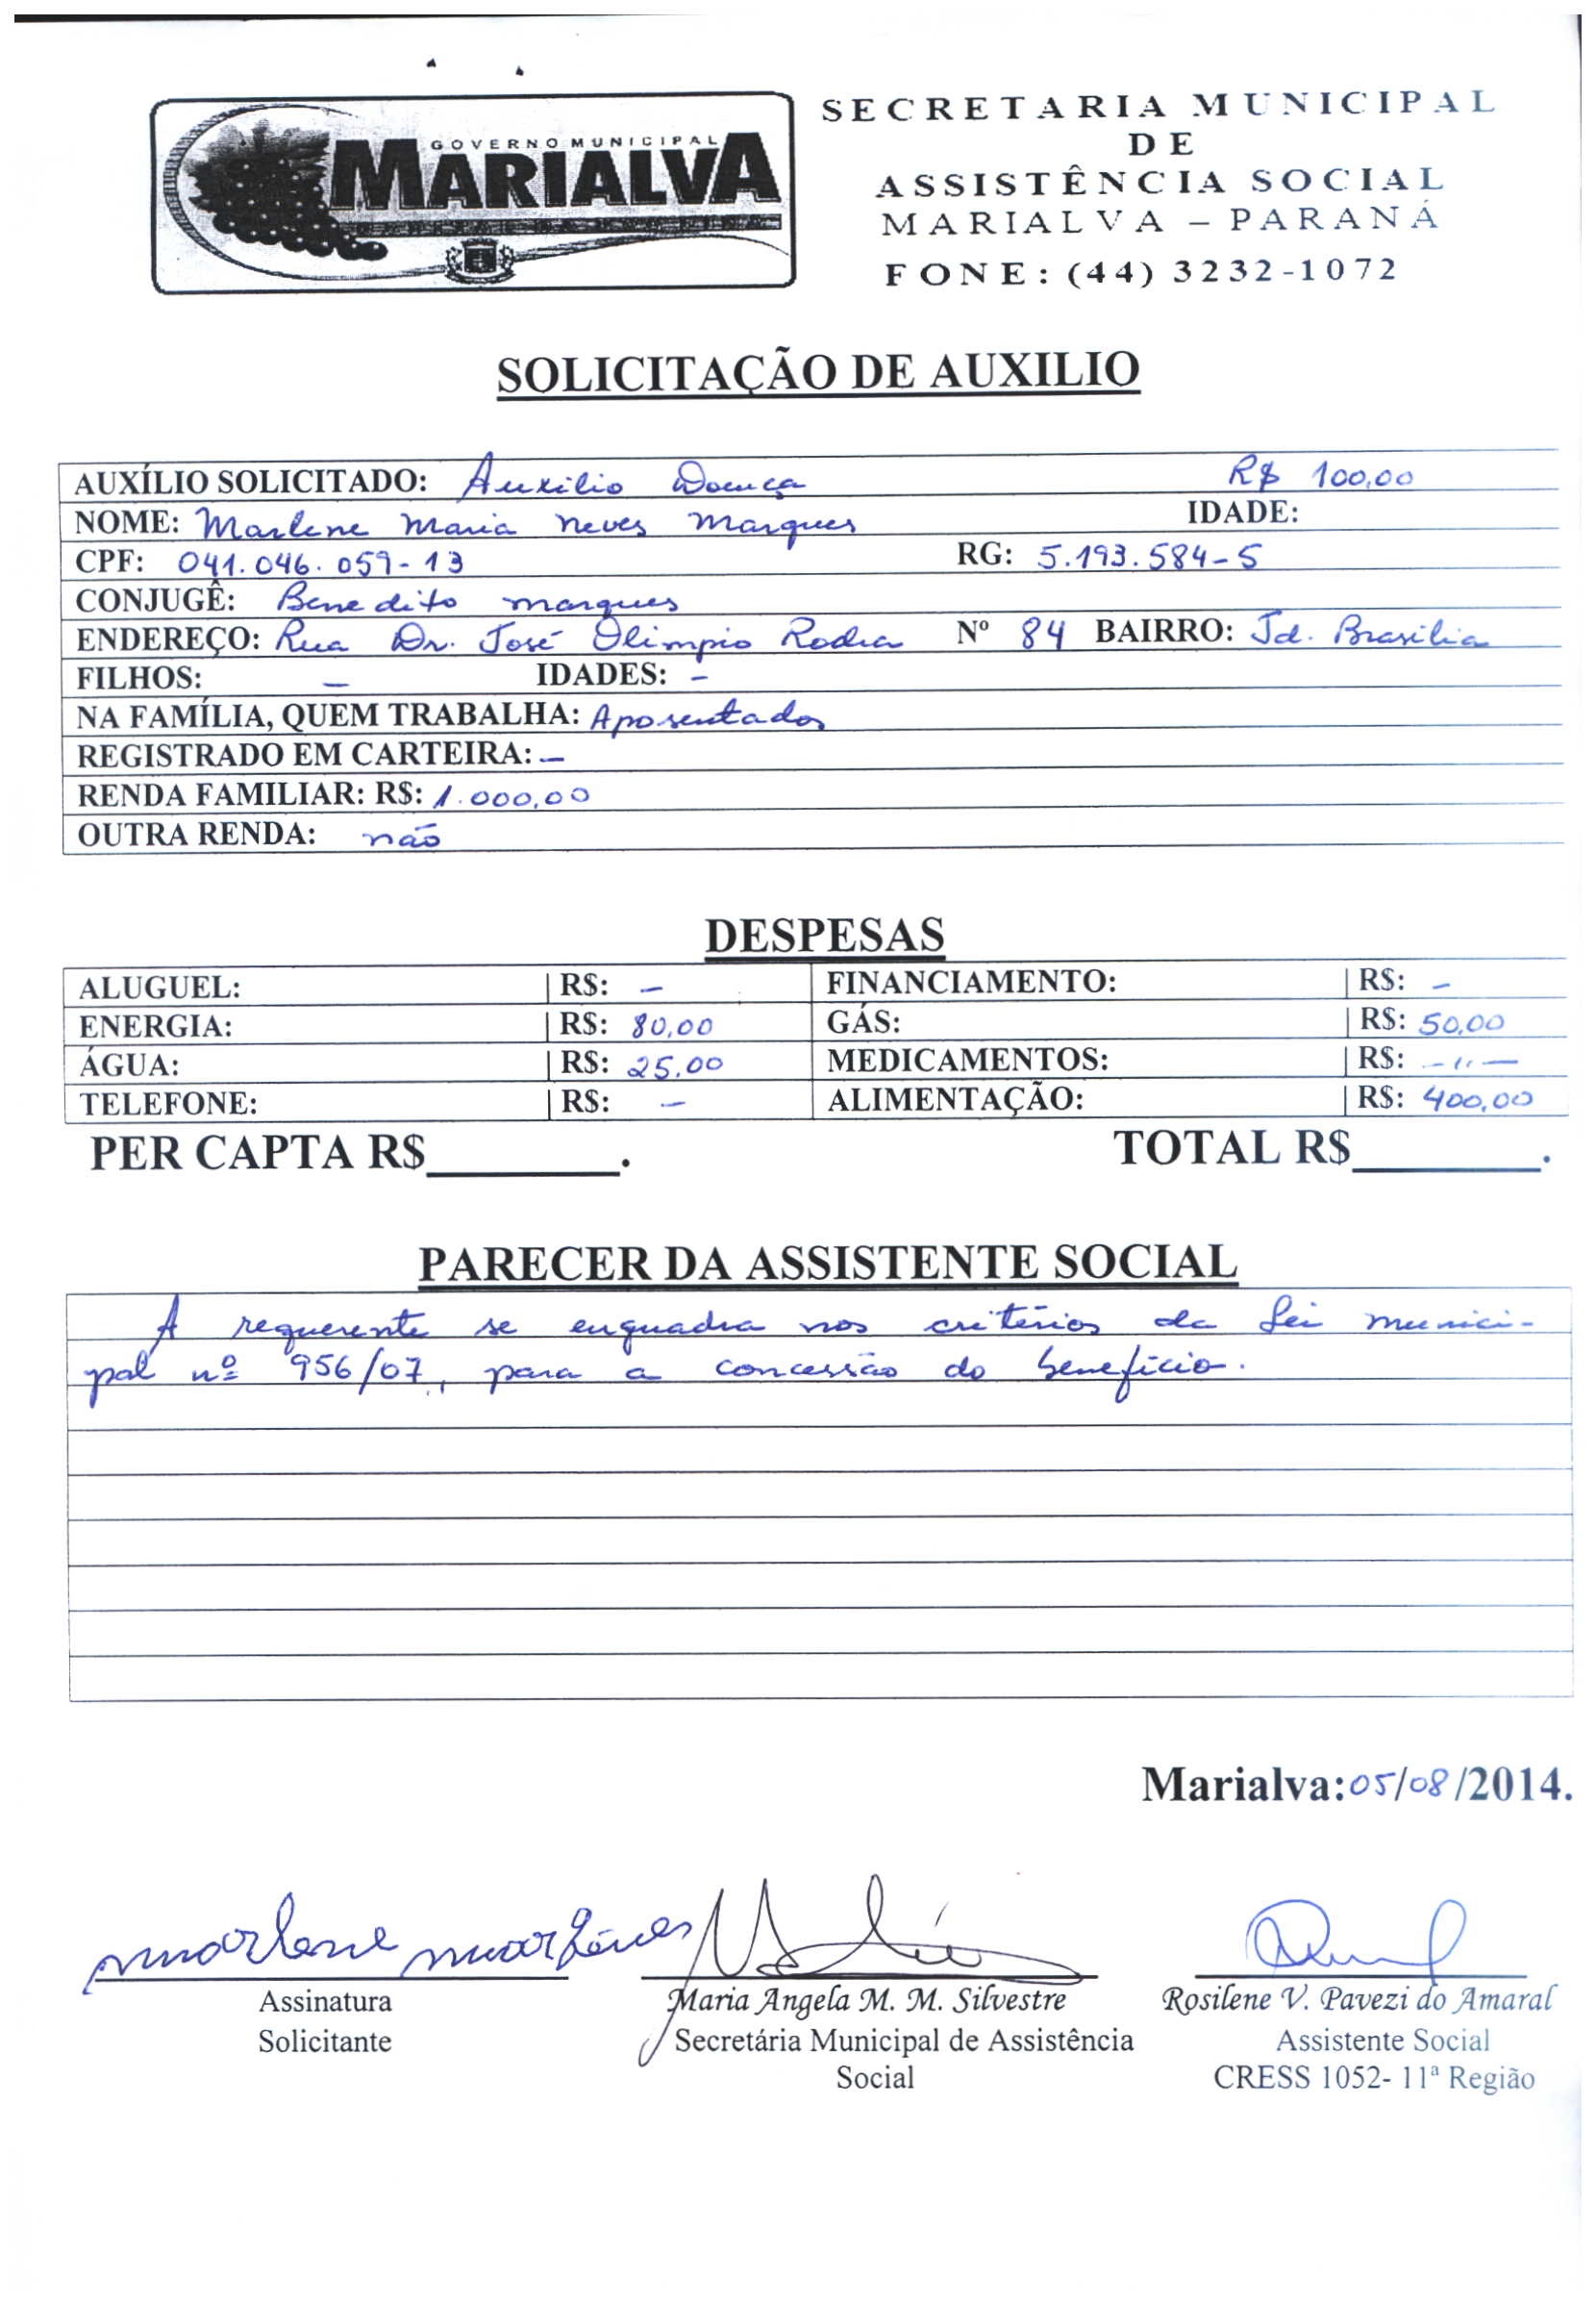 GOVERNO MUNICIPAL
MARIALVA
SECRETARIA MUNICIPAL
DE
ASSISTÊNCIA SOCIAL
MARIALVA – PARANÁ
FONE: (44) 3232-1072
SOLICITAÇÃO DE AUXILIO
AUXÍLIO SOLICITADO: Auxilio Doença R$ 100,00
NOME: Marlene Maria Neves Marques IDADE:
CPF: 041.046.059-13 RG: 5.193.584-5
CONJUGÊ: Benedito Marques
ENDEREÇO: Rua Dr. José Olimpio Nº 84 BAIRRO: Jd. Brasilia
FILHOS: – IDADES: –
NA FAMÍLIA, QUEM TRABALHA: Aposentados
REGISTRADO EM CARTEIRA: –
RENDA FAMILIAR: R$: 1.000,00
OUTRA RENDA: não
DESPESAS
ALUGUEL: R$: – FINANCIAMENTO: R$: –
ENERGIA: R$: 80,00 GÁS: R$: 50,00
ÁGUA: R$: 25,00 MEDICAMENTOS: R$: –〃–
TELEFONE: R$: – ALIMENTAÇÃO: R$: 400,00
PER CAPTA R$________. TOTAL R$________.
PARECER DA ASSISTENTE SOCIAL
A requerente se enquadra nos critérios da Lei munici-
pal nº 956/07, para a concessão do benefício.
Marialva: 05/08/2014.
marlene
Assinatura
Solicitante
Maria Angela M. M. Silvestre
Secretária Municipal de Assistência
Social
Rosilene V. Pavezi do Amaral
Assistente Social
CRESS 1052- 11ª Região